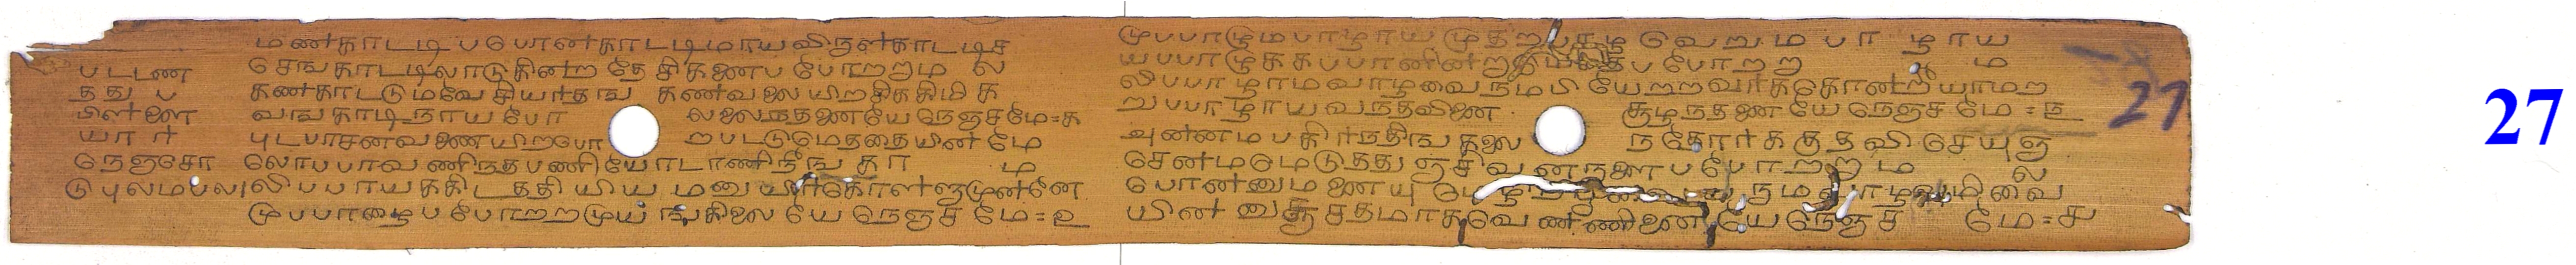 படடண
தது ப
பிளளை
யார
நெஞசோ
டு புலமபல
மணகாடடி ப பொனகாடடி மாயவிருளகாடடிச
செஙகாடடிலாடுகினற தேசிகனைப போறறாம ல
கணகாடடும வேசியரதங கணவலையிறசிககிமிக
வஙகாடி நாயபோ லலைநதனையே நெஞசமே=௧
புடபாசனவணையிறபொ றபடடுமெததையின மே
லொபபாவணிநதபணியோடாணிநீஙகா ம
லிபபாயககிடததியியமனுயிரகொளளுமுனனே
முபபாழைப போறறமுயஙகிலையே நெஞசமே=௨
முபபாழுமபாழாய முதறபாழ வெறும பா ழாய
யபபாழுககபபானினறாடுமதைப போறறா ம
லிபபாழாமவாழவைநமபி யேறறவரககொனறீயாமற
றுபபாழாயவநதவினை சூழநதனையே நெஞசமே=௩
அனனமபகிரநதிஙகலை நதோரககுதவி செயது
செனமமெடுததுஞசிவனருளைப போறறாம ல
பொனனுமனையு மெழிற நமவாழவுமிவை
யினனுஞசதமாகவெணணினையே நெஞச மே=௪
27
27